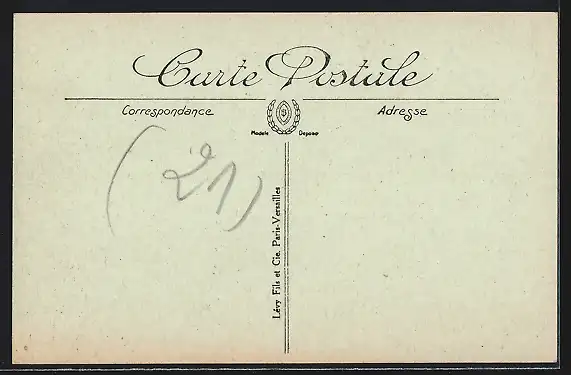 Carte Postale
Correspondance
Adresse
Modèle Déposé
(21)
Lévy Fils et Cie. Paris-Versailles